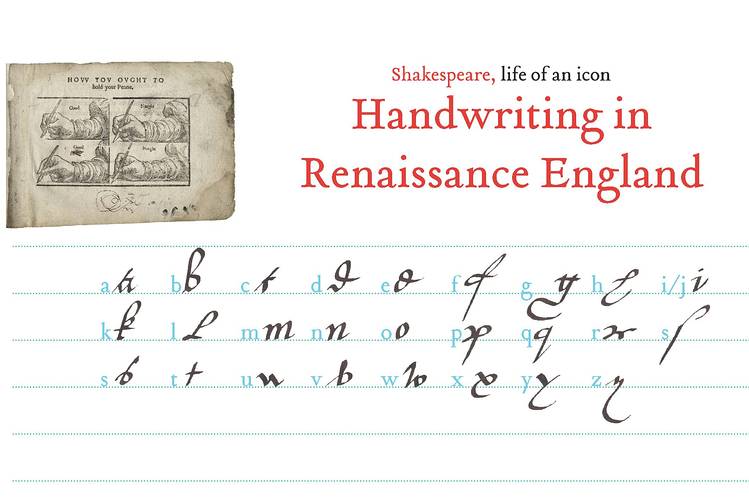 HOVV YOV OVGHT TO
hold your Penne.
Good
Naught
Good
Nought
Shakespeare, life of an icon
Handwriting in
Renaissance England
a a b b c c d d e e f f g g h h i/j i
k k l l m m n n o o p p q q r r s s
s s t t u u v v w w x x y y z z